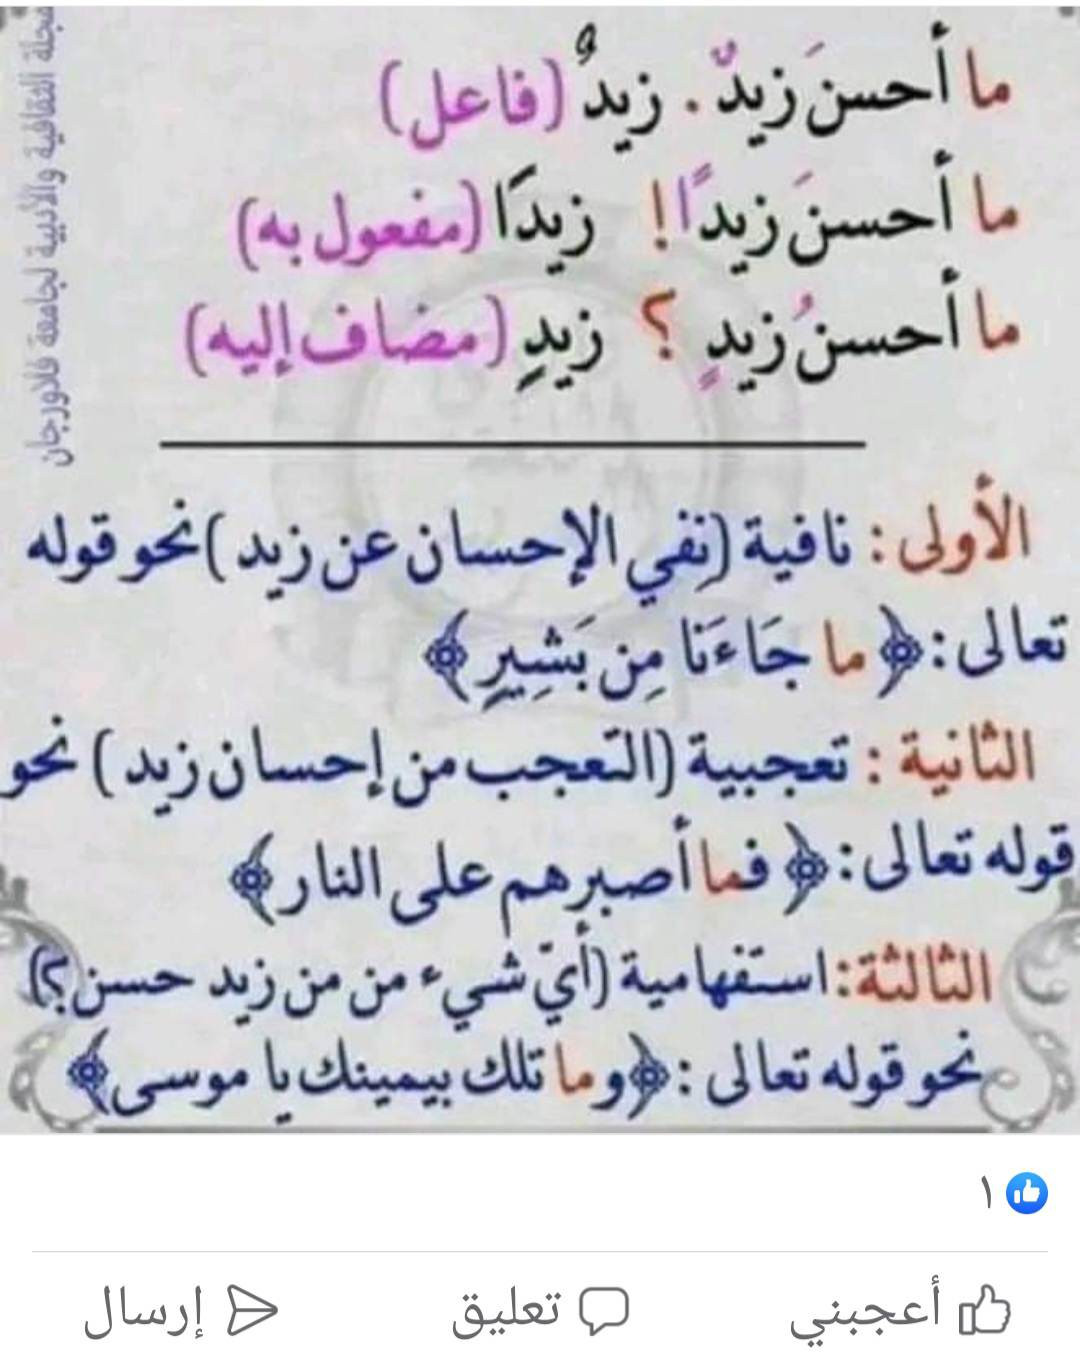 ما أحسنَ زيدٌ . زيدٌ (فاعل)
ما أحسنَ زيدًا ! زيدًا (مفعول به)
ما أحسنُ زيدٍ ؟ زيدٍ (مضاف إليه)
الأولى : نافية (نفي الإحسان عن زيد) نحو قوله
تعالى : ﴿ما جَاءَنَا مِن بَشِيرٍ﴾
الثانية : تعجبية (التعجب من إحسان زيد) نحو
قوله تعالى : ﴿فما أصبرهم على النار﴾
الثالثة : استفهامية (أيّ شيء من من زيد حسن؟)
نحو قوله تعالى : ﴿وما تلك بيمينك يا موسى﴾
مجلة الثقافية والأدبية لجامعة فلاورجان
١
أعجبني
تعليق
إرسال